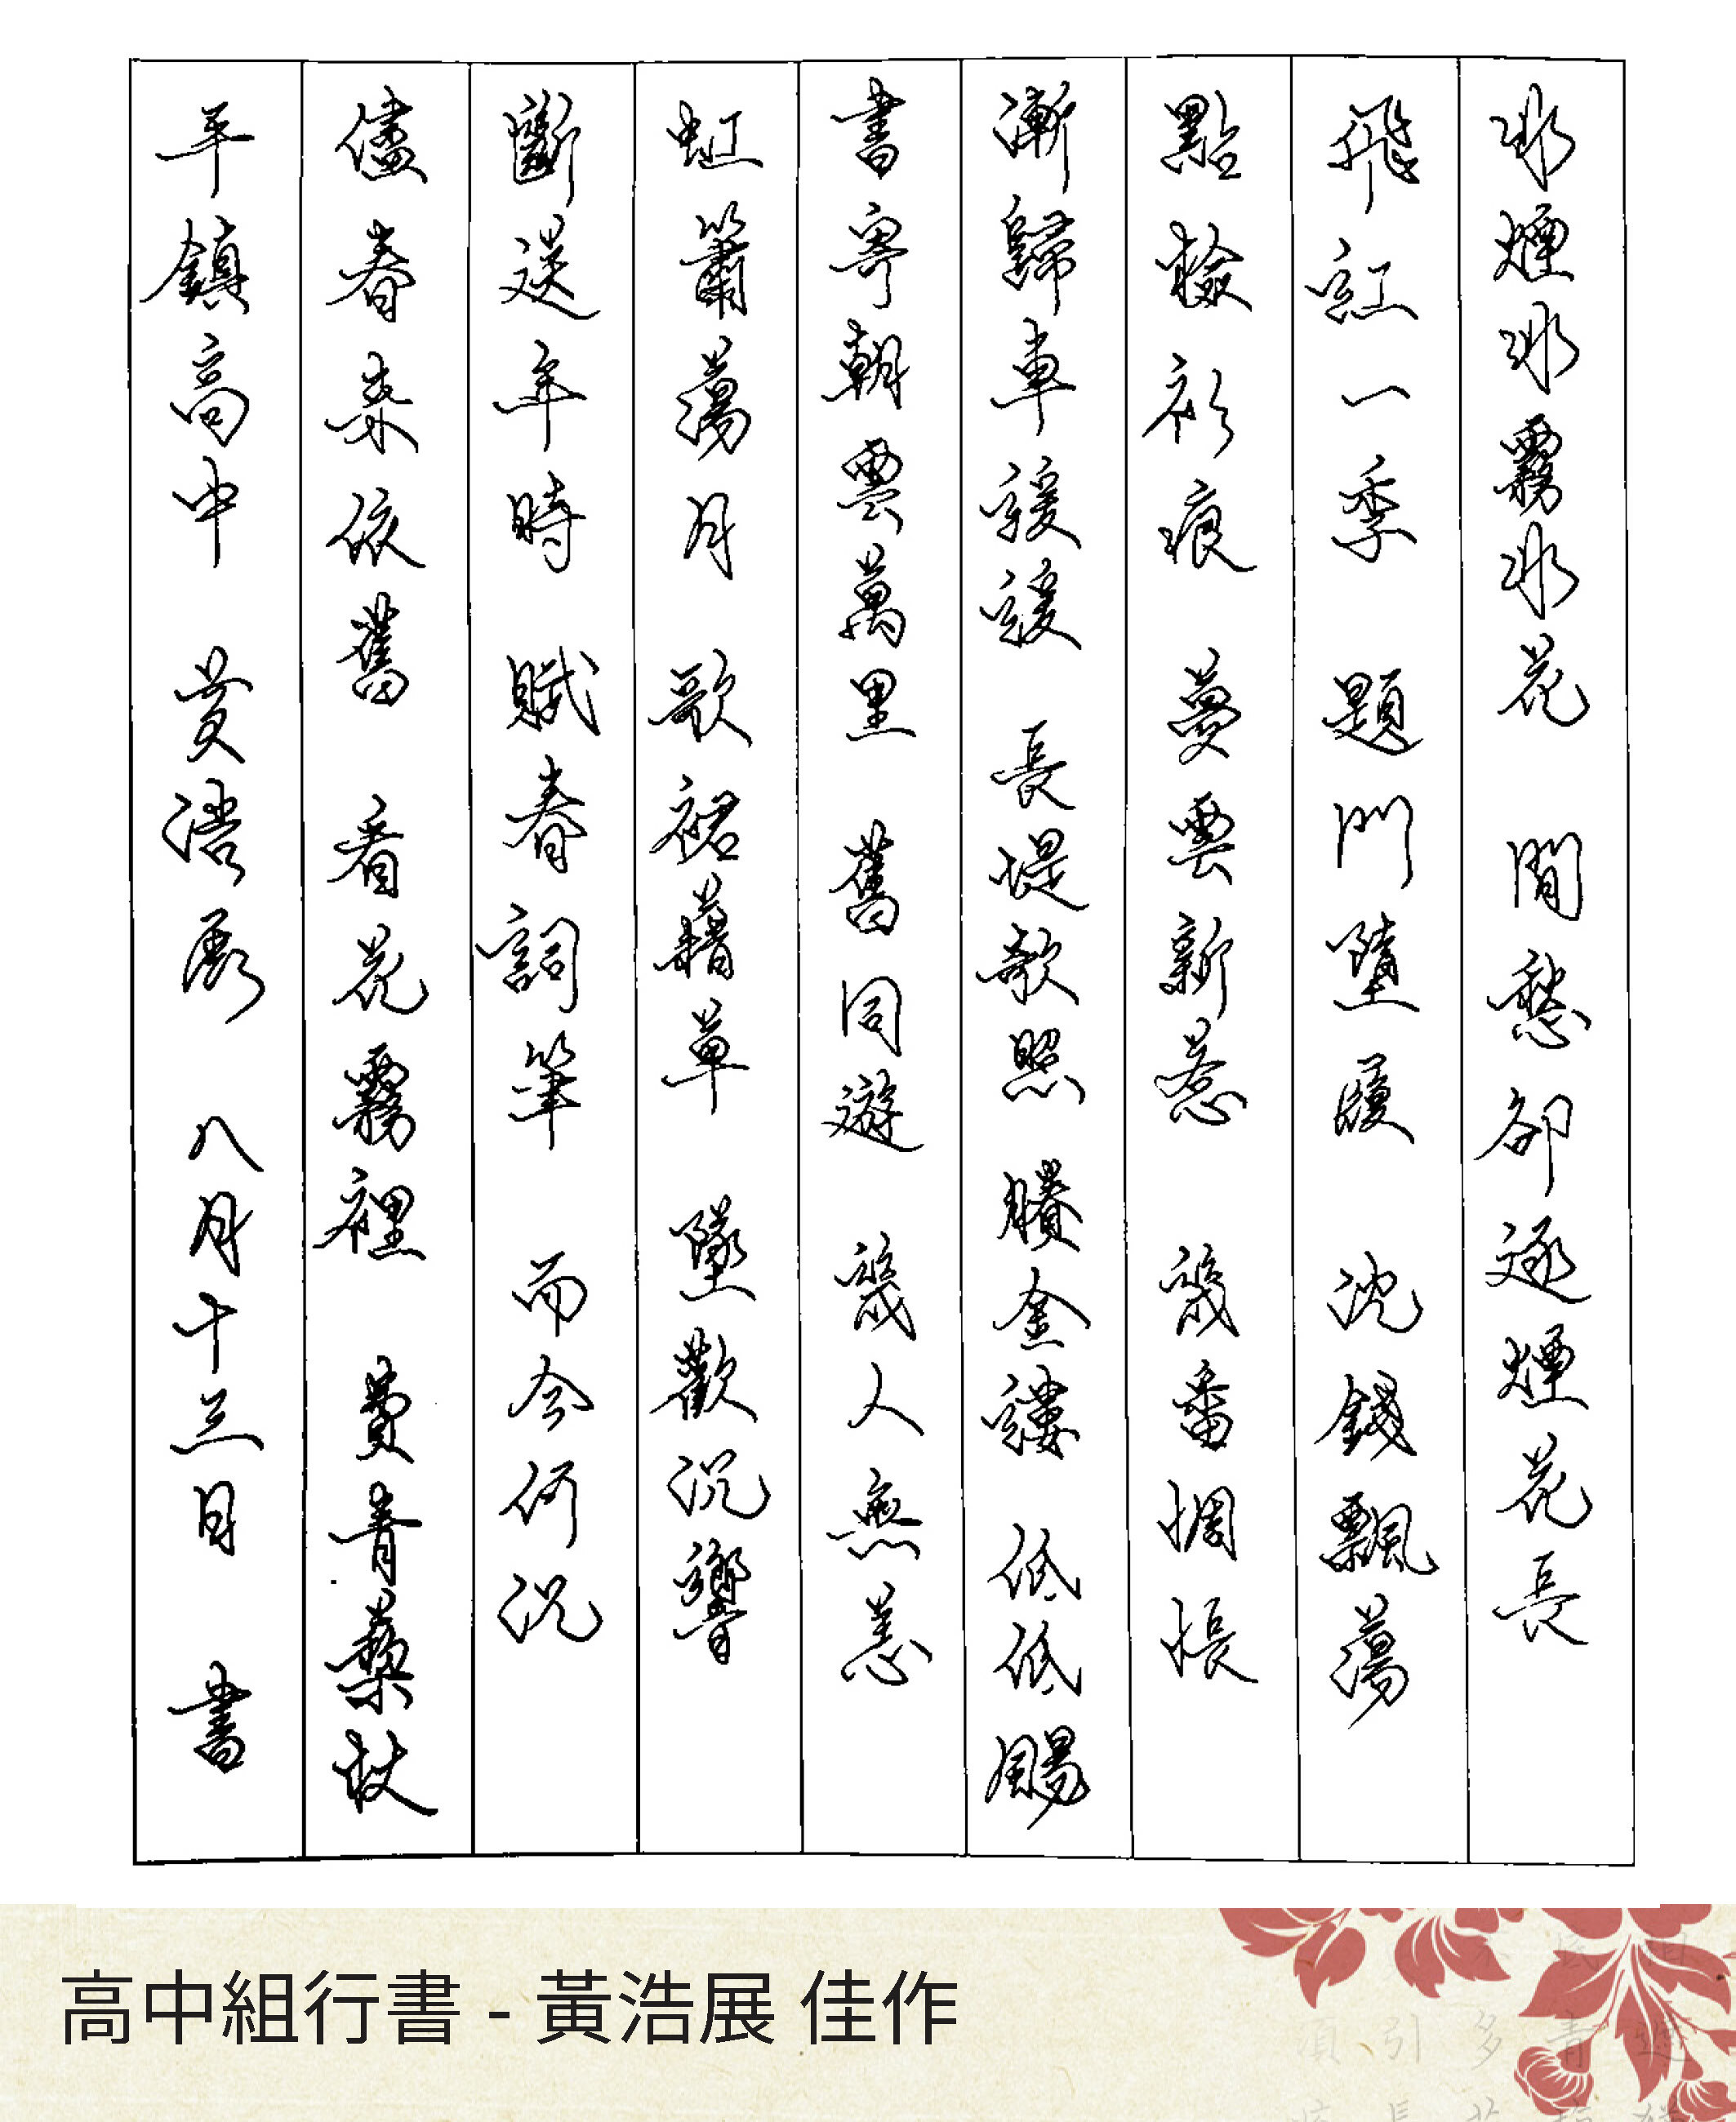 非煙非霧非花 閒愁卻逐煙花長
飛紅一季 題門墮履 沈錢飄蕩
點檢衫痕 夢雲新惹 幾番惆悵
漸歸車緩緩 長堤欹照 賸金縷 低低颺
書寄朝雲萬里 舊同遊 幾人無恙
虹簫蕩月 歌裙藉草 墜歡沉響
斷送年時 賦春詞筆 而今何況
儘春來依舊 看花霧裡 費青藜杖
平鎮高中 黃浩展 八月十三日 書
高中組行書 - 黃浩展 佳作